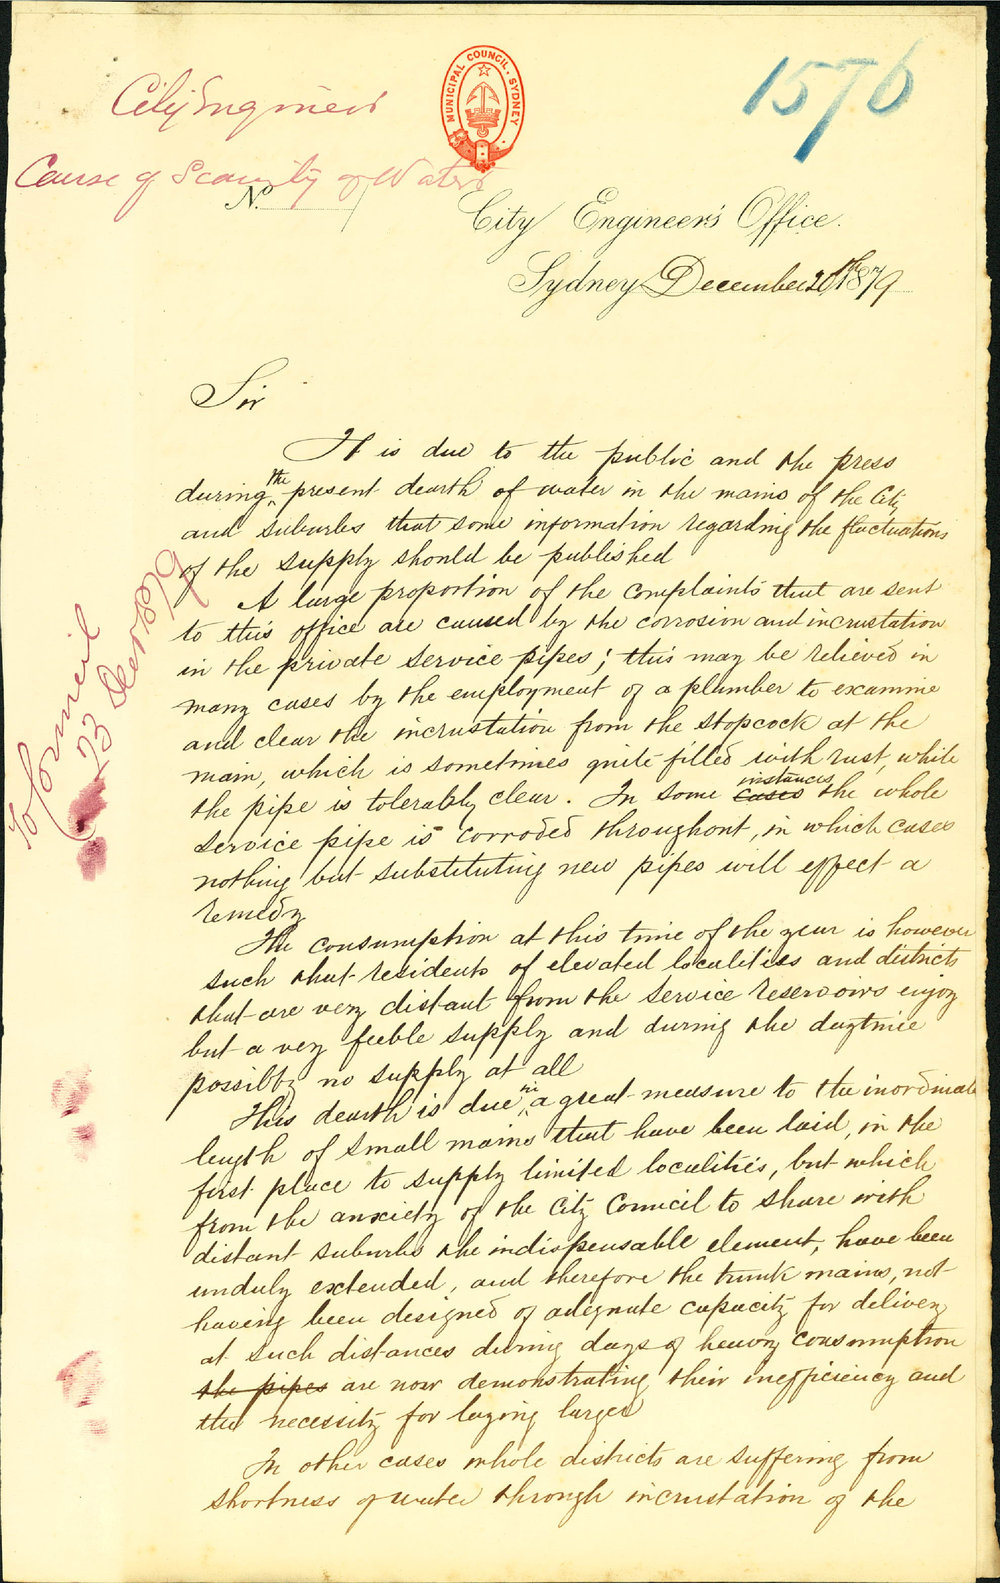 City Engineer
Cause of Scarcity of Water
MUNICIPAL COUNCIL. SYDNEY
1576
No.
City Engineer's Office.
Sydney December 20th 1879
Sir
It is due to the public and the press
during the present dearth of water in the mains of the City
and suburbs that some information regarding the fluctuations
of the supply should be published
A large proportion of the complaints that are sent
to this office are caused by the corrosion and incrustation
in the private service pipes; this may be relieved in
many cases by the employment of a plumber to examine
and clear the incrustation from the stopcock at the
main, which is sometimes quite filled with rust, while
the pipe is tolerably clear. In some cases instances the whole
service pipe is corroded throughout, in which cases
nothing but substituting new pipes will effect a
remedy
The consumption at this time of the year is however
such that residents of elevated localities and districts
that are very distant from the service reservoirs enjoy
but a very feeble supply and during the daytime
possibly no supply at all
This dearth is due in a great measure to the inordinate
length of small mains that have been laid, in the
first place to supply limited localities, but which
from the anxiety of the City Council to share with
distant suburbs the indispensable element, have been
unduly extended, and therefore the trunk mains, not
having been designed of adequate capacity for delivery
at such distances during days of heavy consumption
the pipes are now demonstrating their inefficiency and
the necessity for laying larger
In other cases whole districts are suffering from
shortness of water through incrustation of the
To Council
23 Decr 1879